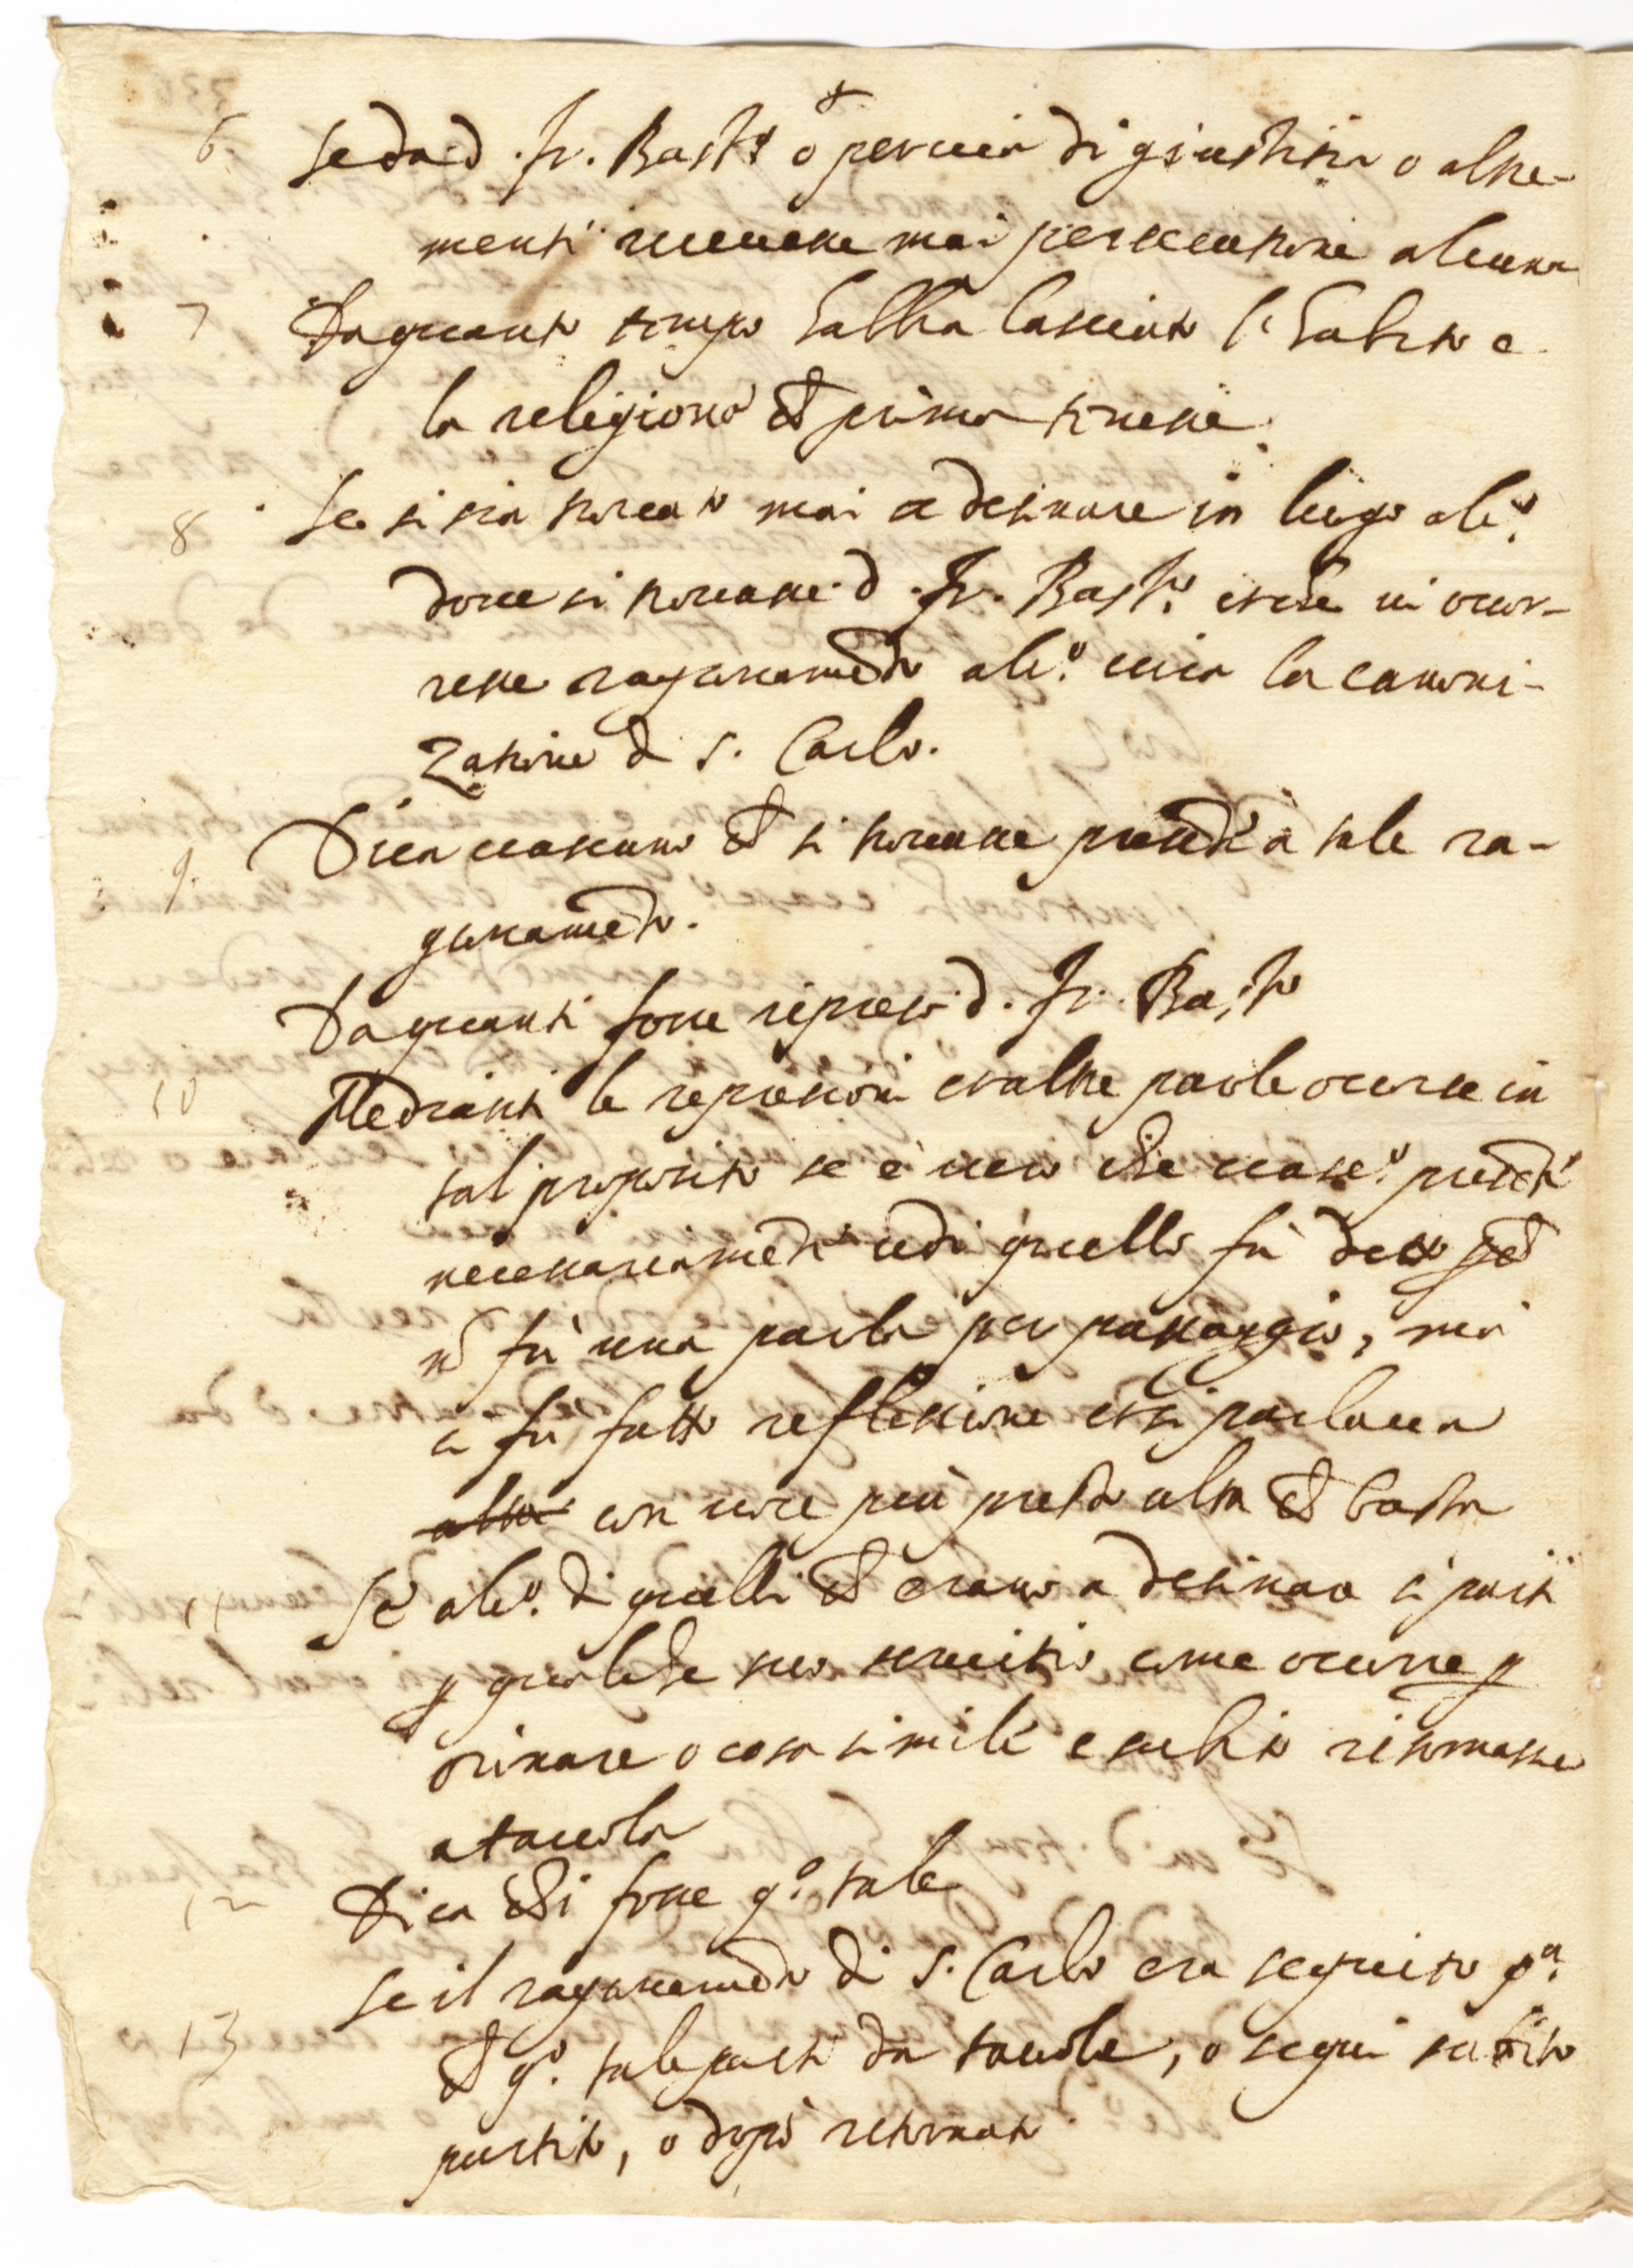 6 Se da d. fr. Bast.º o per via di giustitia o altre-
menti ricevesse mai persecutione alcuna
7 Da quanto tempo habbia lasciato l'habito e
la religione che prima tenesse
8 Se si sia trovato mai a desinare in luogo alc.º
dove si trovasse d. fr. Bast.º et che vi ocor-
resse ragionamento alc.º circa la canoni-
zatione di S. Carlo.
9. Dica ciascuno che si trovasse presente à tale ra-
gionamento.
Da quanti fosse ripreso d. fr. Basto
10 Mediante le reprensioni et altre parole ocorse in
tal proposito se è vero che ciasc.º presente
necessariamente udi quello fù detto
nō fù una parola per passaggio, ma
ci fù fatto reflessione et si parlava
con voce più presto alta che bassa
11 Se alc.º di quelli che erano a desinare si parti
p qualche suo servitio come ocorre p
orinare o cosa simile e subito ritornasse
a tavola
12 Dica chi fosse q.º tale
13 Se il ragionamento di S. Carlo era seguito p.ª
che q.º tale parti da tavola, o segui subito
partito, o dopò ritornato